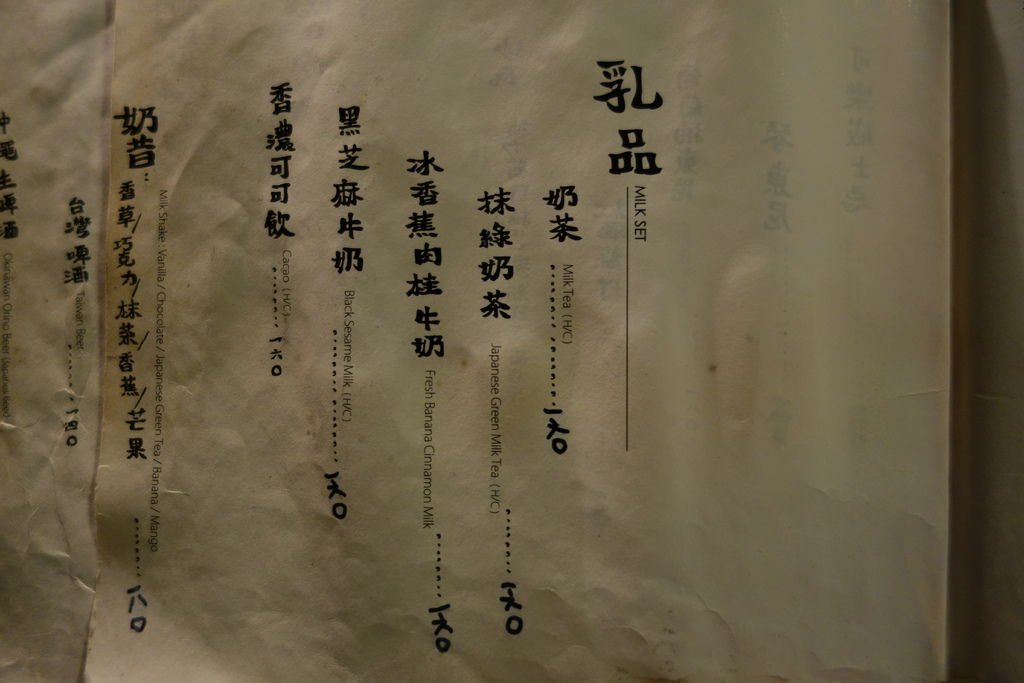 乳品
MILK SET
奶茶
Milk Tea (H/C)
一六〇
抹綠奶茶
Japanese Green Milk Tea (H/C)
一六〇
冰香蕉肉桂牛奶
Fresh Banana Cinnamon Milk
一六〇
黑芝麻牛奶
Black Sesame Milk (H/C)
一六〇
香濃可可飲
Cacao (H/C)
一六〇
Milk Shake : Vanilla / Chocolate / Japanese Green Tea / Banana / Mango
奶昔: 香草/巧克力/抹茶香蕉/芒果
一八〇
台灣啤酒
Taiwan Beer
一四〇
沖繩生啤酒
Okinawan Orino Beer (Japanes Beer)